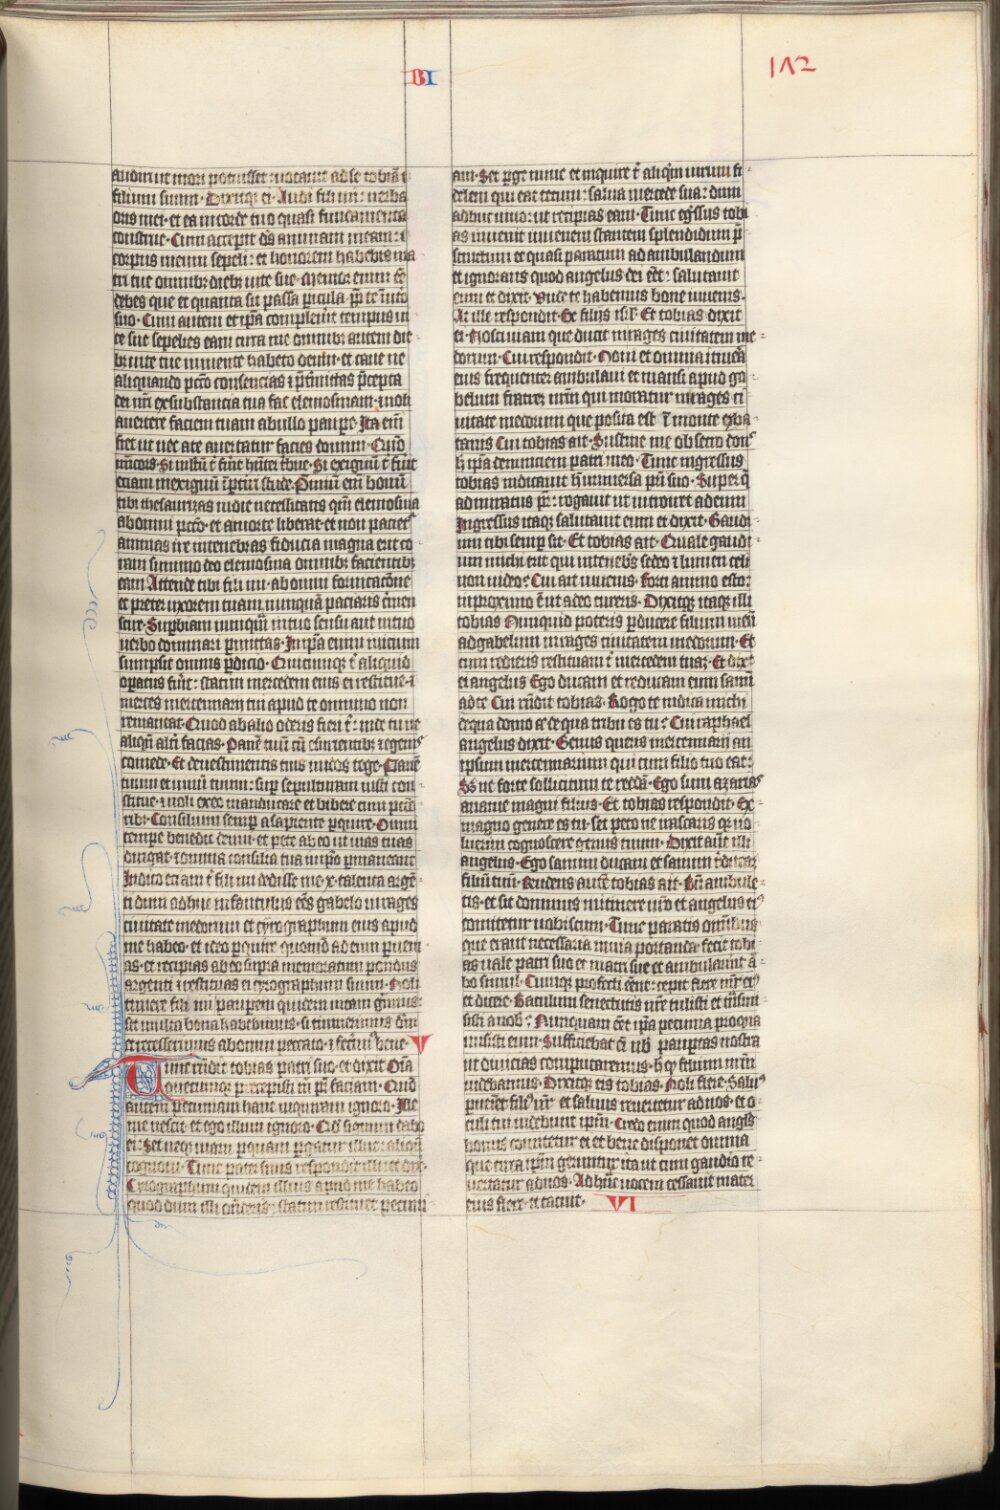 BI
1Λ2
audiri ut mori potuisset: vocavit ad se tobiā ⁊
filium suum· Dixitqꝫ ei· Audi fili mi: verba
oris mei· et ea in corde tuo quasi fundamenta
construe· Cum acceperit dš animam meam: ⁊
corpus meum sepeli: et honorem habebis ma
tri tue omnibꝫ diebꝫ vite sue· Memor enim eē
debes que et quanta sit passa picula· ꝓpt te ī utō
suo· Cum autem et ipa compleuīt tempus vi
te sue sepelies eam circa me omnibꝫ autem die
bꝫ vite tue in mente habeto deum· et caue ne
aliquando pctō consencias ⁊ ptmittas pcepta
dei nrī ex substancia tua fac elemosinam· ⁊ noli
auertere faciem tuam ab ullo paupe· Ita em̄
fiet ut nec a te auertatur facies domini· Quō
etiam in exiguū
tibi thesaurizas in die necessitatis qm̄ elemosina
ab omni pctō· et a morte liberat· et non paciet᷑
animas ire in tenebras fiducia magna erit co
ram summo deo elemosina omnibꝫ facientibꝫ
eam Attende tibi fili mi· ab omni fornicacōne
et preter uxorem tuam nunquā paciaris crimen
scire· Supbiam nunqm̄ in tuo sensu aut in tuo
verbo dominari pmittas· In ipa enim inicium
sumpsit omnis pdicio· Quicumqꝫ t aliquid
opatus fūit: statim mercedem eius ei restitue· ⁊
merces mercennarij tui apud te omnino non
remaneat· Quod ab alio oderis fieri t: vide tu ne
aliqn̄ altī facias· Panē tuū cū esurientibꝫ ⁊ egenis
comede· Et de vestimentis tuis nudos tege· Panē
tuum et vinū tuum: sup sepulturam iusti con
stitue· ⁊ noli ex eo manducare et bibere cum pctō
ribꝫ· Consilium semp a sapiente pquire· Omni
tempe benedic deum· et pete ab eo ut vias tuas
dirigat· ⁊ omnia consilia tua in ipo pmaneant
Indico etiam t fili mi dedisse me x· talenta argē
ti dum adhuc infantulus eēs gabelo in rages
ciuitate medorum et cyrographum eius apud
me habeo· et ideo pquire quomō ad eum puen
as· et recipias ab eo supra memoratum pondus
argenti ⁊ restituas ei cyrographum suum· Noli
timere fili mi pauperem quidem uitam gerimus·
set multa bona habebimus· si timuerimus dm̄
et recesserimus ab omni peccato· ⁊ fecīm᷒ bene· V
Tunc rn̄dit tobias patri suo· et dixit Oīa
quecumqꝫ precepisti m̄ pr̄ faciam· Quō
autem pecuniam hanc inquiram ignoro· Ille
me nescit· et ego illum ignoro· Qd̄ signum dabo
ei· Set neqꝫ viam p quam pgatur illuc aliqn̄
cognoui· Tunc pater suus respondit illi et dix·
Cyrographum quidem illius apud me habeo
quod dum illi ostēderis: statim restituet pecuni
am· Set pge nunc et inquire t aliqm̄ uirum fi
delem qui eat tecum: salua mercede sua: dum
adhuc viuo: ut recipias eam· Tunc egssus tobi
as inuenit iuuenem stantem splendidum p
cinctum et quasi paratum ad ambulandum
et ignorans quod angelus dei eēt: salutauit
eum et dixit· Vnde te habemus bone iuuenis·
At ille respondit· Ex filijs isrl̄· Et tobias dixit
ei· Nosti uiam que ducit in rages ciuitatem me
dorum· Cui respondit· Noui et omnia itinera
eius frequenter ambulaui et mansi apud ga
belum fratrem nrm̄ qui moratur in rages ci
uitate medorum que posita est ī monte exba
tanis Cui tobias ait· Sustine me obsecro don᷑
h ipa denunciem patri meo· Tunc ingressus
tobias indicauit h vniuersa pri suo· Super q̄
admiratus pr̄: rogauit ut introiret ad eum
Ingressus itaqꝫ salutauit eum et dixit· Gaudi
um tibi semp sit· Et tobias ait· Quale gaudi
um michi erit qui in tenebrꝭ sedeo ⁊ lumen celi
non video? Cui ait iuuenis· Forti animo esto:
in proximo ē ut a deo cureris· Dixitqꝫ itaqꝫ illi
tobias Nunquid poteris pducere filium meū
ad gabelum in rages ciuitatem medorum· Et
cum redieris restituam t mercedem tuaꝫ· Et dixt
ei angelus Ego ducam et reducam eum sanū
ad te Cui rn̄dit tobias· Rogo te indica michi
de qua domo a͡e de qua tribu es tu? Cui raphael
angelus dixit· Genus queris mercennarij an
ipsum mercennarium qui cum filio tuo eat?
Sꝫ ne forte sollicitum te reddā· Ego sum azarias
ananie magni filius· Et tobias respondit· Ex
magno genere es tu· set peto ne irascaris qꝫ uo
luerim cognoscere genus tuum· Dixit aūt illi
angelus· Ego sanum ducam et sanum t reducā
filiū tuū· Rn̄dens autē tobias ait· Bn̄ ambule
tis· et sit dominus in itinere vr̄o et angelus ei᷒
comitetur uobiscum· Tunc paratis omībus
que erant necessaria in uia portanda· fecit tobi
as vale patri suo et matri sue et ambulauīt ā
bo simul· Cumqꝫ profecti eēnt: cepit flere mr̄ ei᷒
et dicere· Baculum senectutis nr̄e tulisti et trāsmi
sisti a nob᷒· Nunquam eēt ipa pecunia pro qua
misisti eum· Sufficiebat eī nb̄ paupertas nostra
ut diuicias computaremus· h qd̄ filium nrm̄
videbamus· Dixitqꝫ eis tobias· Noli flere· Salu᷒
pueniet fili᷒ nr̄· et saluus reuertetur ad nos· et o
culi tui videbunt ipm̄· Credo enim quod angls̄
bonus comitetur ei et bene disponet omnia
que circa ipm̄ geruntur· ita ut cum gaudio re
uertatur ad nos· Ad hanc uocem cessauit mater
eius flere· et tacuit· VI